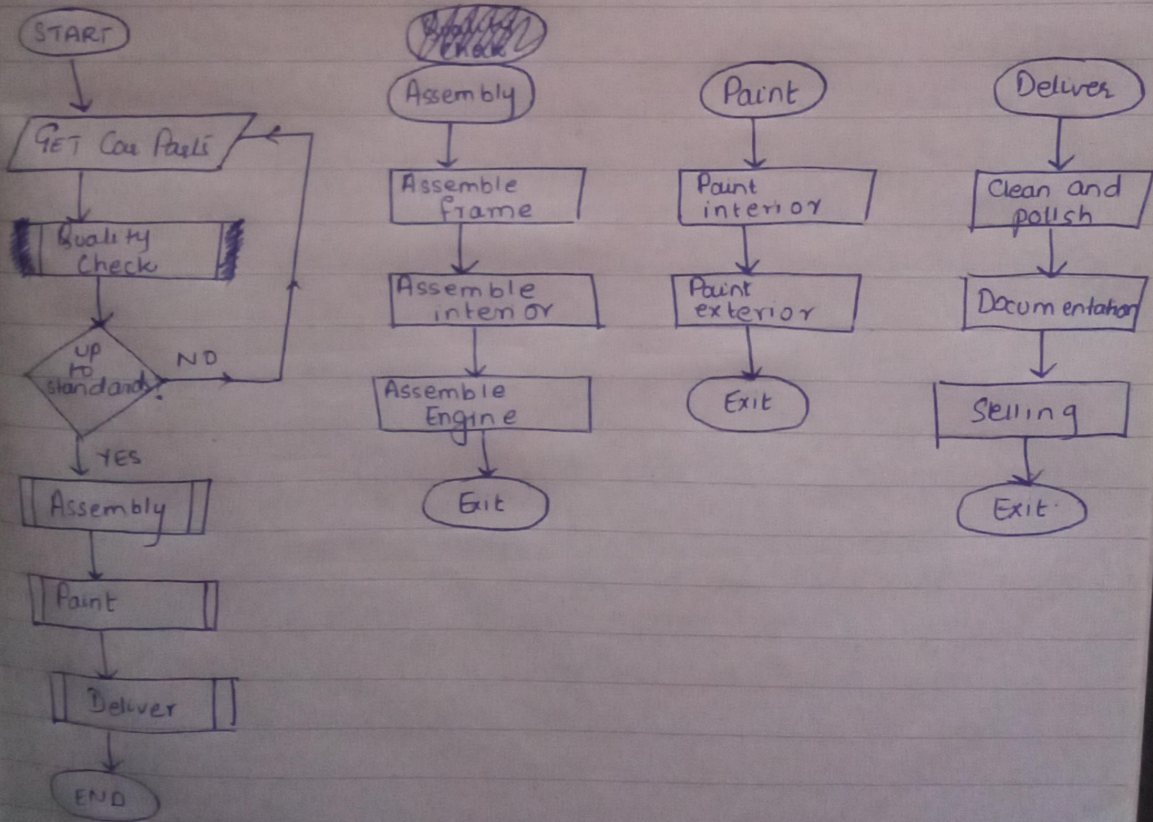 START
GET Car Parts
Quality
Check
up
to
standard?
NO
YES
Assembly
Paint
Deliver
END
Assembly
Assemble
frame
Assemble
interior
Assemble
Engine
Exit
Paint
Paint
interior
Paint
exterior
Exit
Deliver
Clean and
polish
Documentation
Selling
Exit